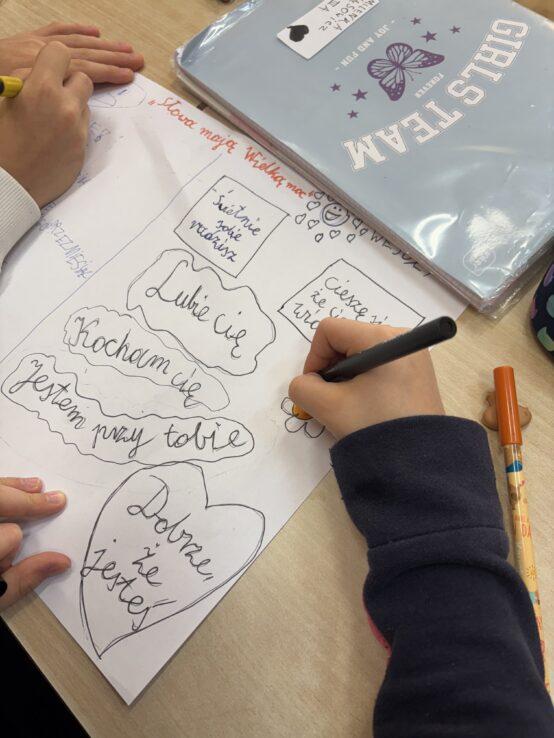 "Słowa mają Wielką moc"
Świetnie
sobie
radzisz
Lubię cię
Kocham cię
Jestem przy tobie
Dobrze,
że
jesteś
Cieszę się
że
GIRLS TEAM
FOREVER
- JOY AND FUN -
MILENKA